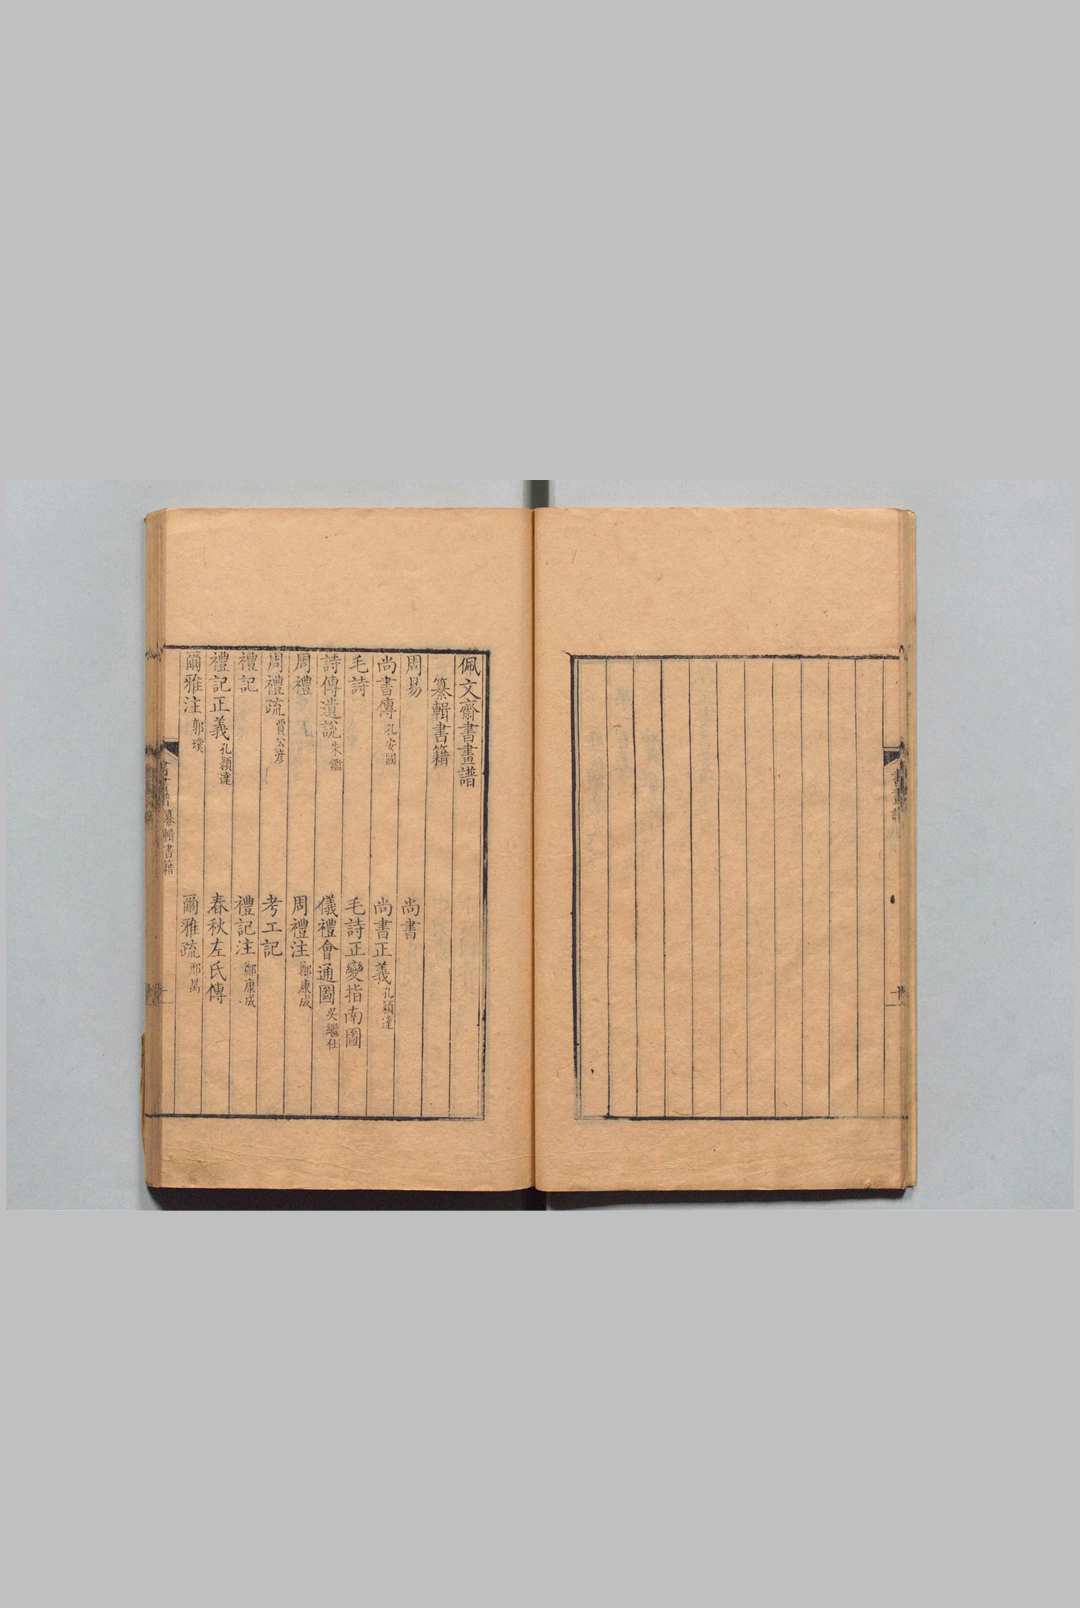 佩文齋書畫譜
纂輯書籍
周易 尚書
尚書傳 孔安國 尚書正義 孔穎達
毛詩 毛詩正變指南圖
詩傳遺說 朱鑑 儀禮會通圖 吳繼仕
周禮 周禮注 鄭康成
周禮疏 賈公彥 考工記
禮記 禮記注 鄭康成
禮記正義 孔穎達 春秋左氏傳
爾雅注 郭璞 爾雅疏 邢昺
纂輯書籍